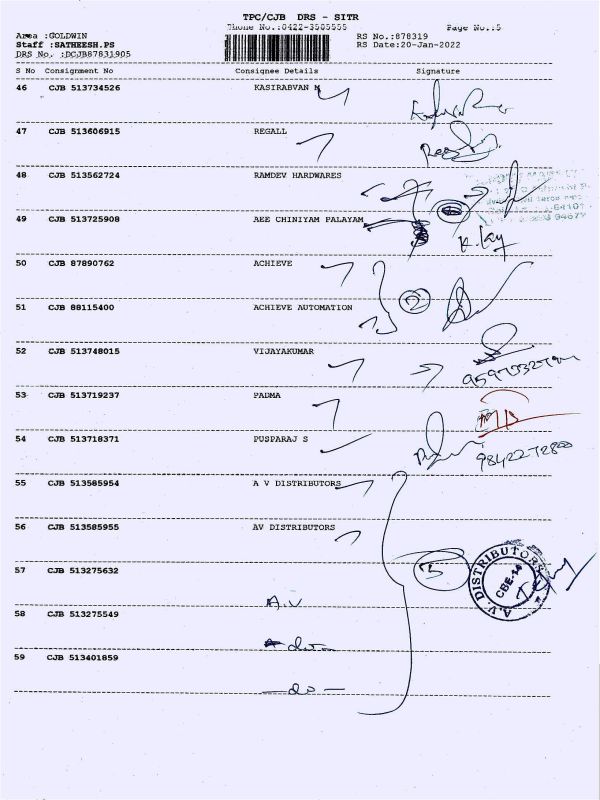 TPC/CJB DRS - SITR
Phone No.:0422-3505555 Page No.:5
Area :GOLDWIN RS No.:878319
Staff :SATHEESH.PS RS Date:20-Jan-2022
DRS No. :DCJB87831905
S No Consignment No Consignee Details Signature
46 CJB 513734526 KASIRABVAN M
47 CJB 513606915 REGALL
48 CJB 513562724 RAMDEV HARDWARES
49 CJB 513725908 AEE CHINIYAM PALAYAM
K. Kay
50 CJB 87890762 ACHIEVE
2
51 CJB 88115400 ACHIEVE AUTOMATION
52 CJB 513748015 VIJAYAKUMAR
53 CJB 513719237 PADMA
54 CJB 513718371 PUSPARAJ S
55 CJB 513585954 A V DISTRIBUTORS
56 CJB 513585955 AV DISTRIBUTORS
57 CJB 513275632
5
A.V. DISTRIBUTORS
CBE-14
A.V
58 CJB 513275549
59 CJB 513401859
— do —